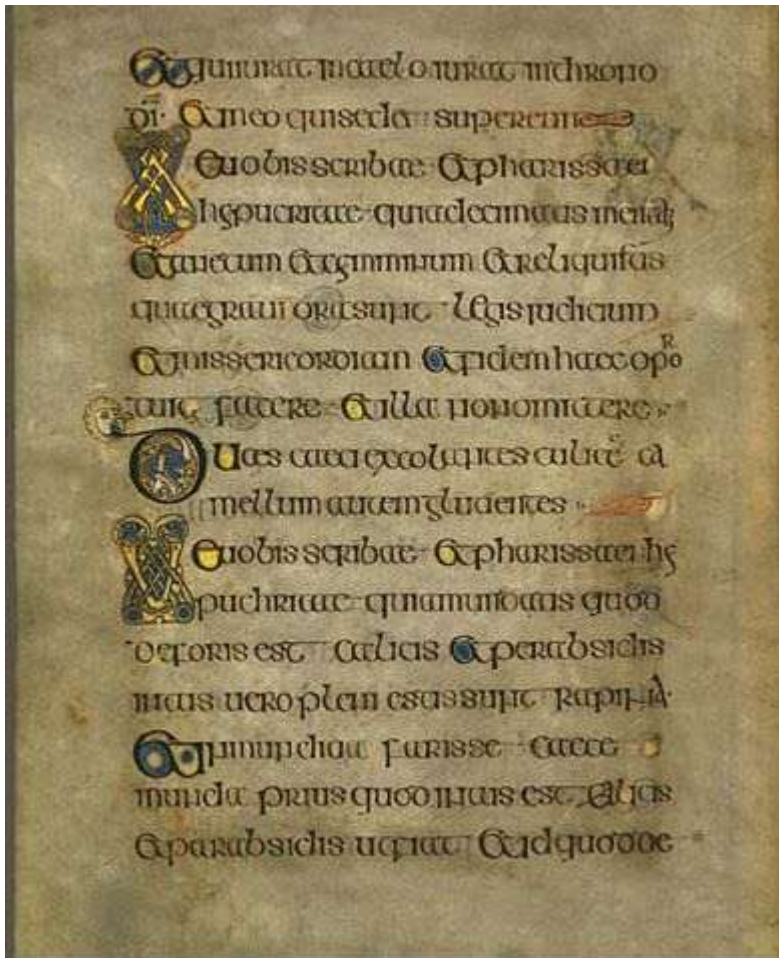 Et qui iurat in caelo iurat in throno
di· et in eo qui sedet super eum
Uae uobis scribae et pharissaei
hypucritae quia decimatis mentam
et anetum et cyminum et reliquistis
quae grauiora sunt legis iudicium
et missericordiam et fidem haec opor
tuit facere et illa non omittere
Duces caeci excolantes culice ca
mellum autem glutientes
Uae uobis scribae et pharissaei hy
puchritae quia mundatis quod
deforis est calicis et parabsidis
intus uero pleni estis sunt rapina
et inmunditia farisse caece
munda prius quod intus est calicis
et parabsidis ut fiat et id quod de